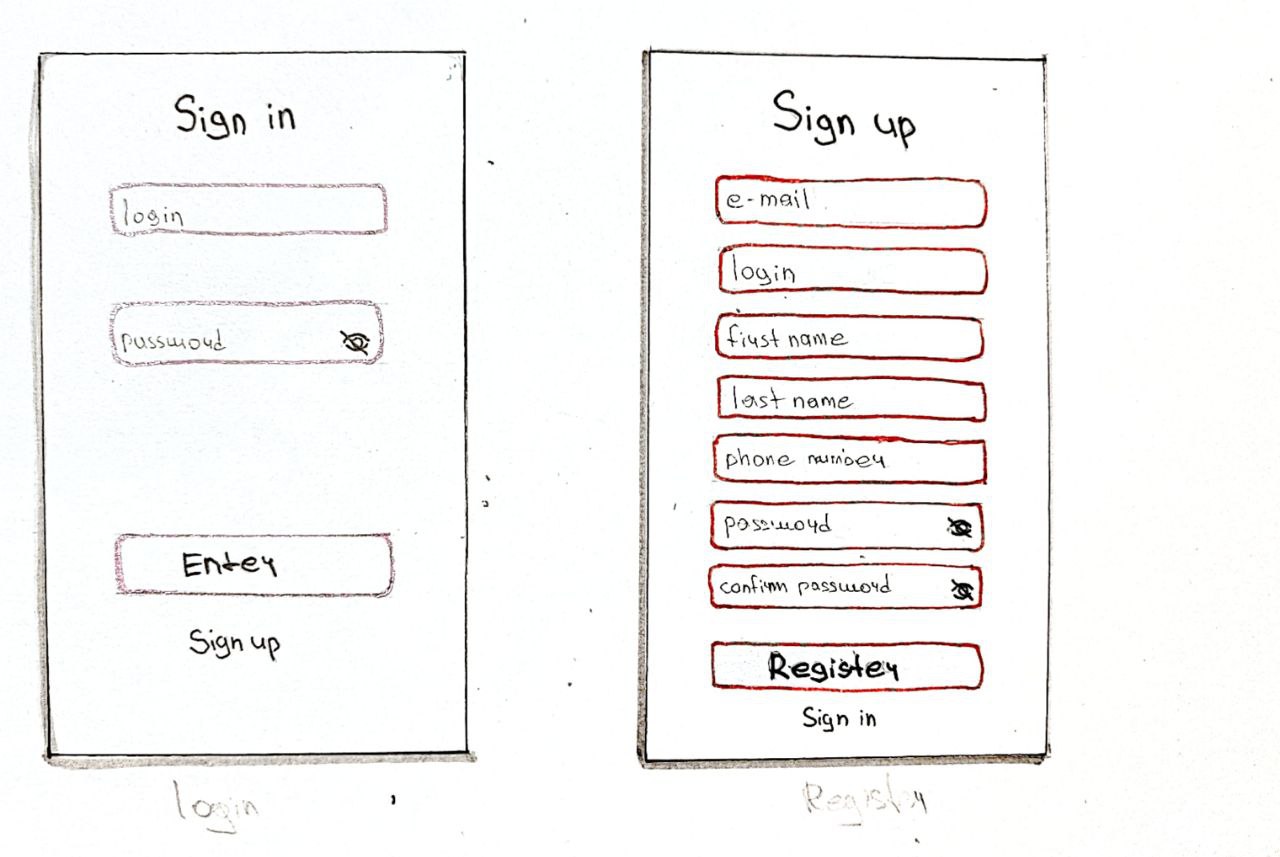 Sign in
login
password
Enter
Sign up
login
Sign up
e-mail
login
first name
last name
phone number
password
confirm password
Register
Sign in
Register